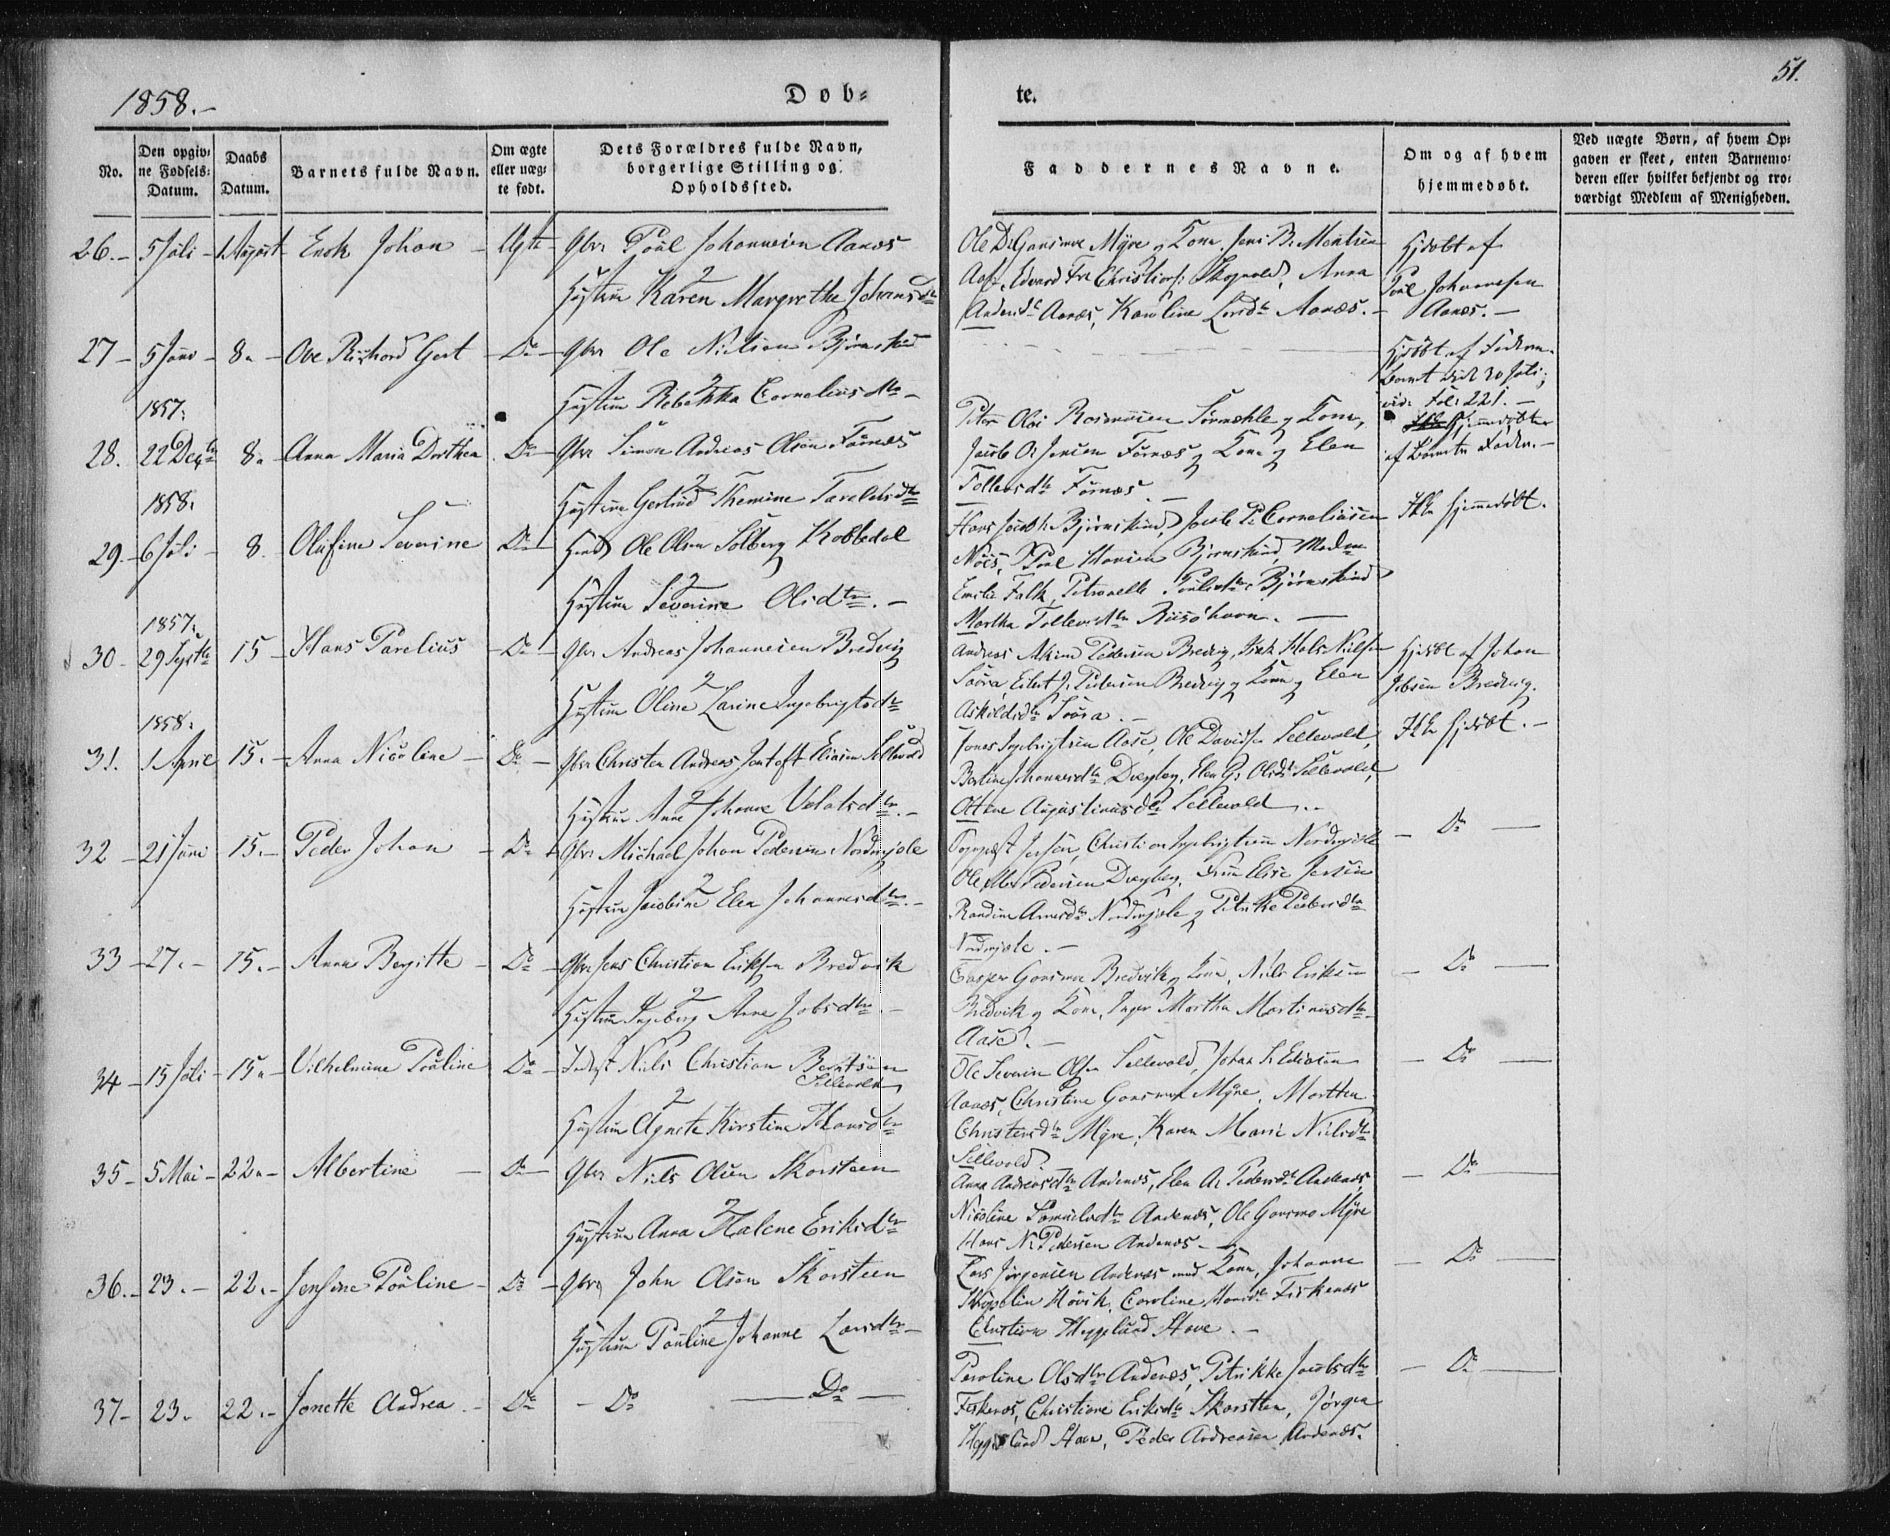 1858.-
Døb-
te.
51.
No.
Den opgiv-
ne Fødsels-
Datum.
Daabs
Datum.
Barnets fulde Navn.
Om ægte
eller uæg-
te født.
Dets Forældres fulde Navn,
borgerlige Stilling og
Opholdssted.
Faddernes Navne.
Om og af hvem
hjemmedøbt.
Ved uægte Børn, af hvem Op-
gaven er skeet, enten Barnemo-
deren eller hvilket bekjendt og tro-
værdigt Medlem af Menigheden.
26.- 5 Juli - 1 August Enok Johan - Ugte - Gbr Poul Johannesen Aanes
Hustru Karen Margrethe Johansdtr
Aanes, Karoline Larsdtr Aanes.-
Hjdøbt af
Poul Johannesen
Aanes.-
27 - 5 Juni - 8 - Ove Richard Gert - Do - Gbr Ole Nielsen Bjørnskind
Hustru Rebekka Corneliusdtr -
Hjdøbt af Faderen.
Barnet død 20 Juli;
vide Fol: 221.-
1857.
28. 22 Decbr 8 Anna Maria Dorthea Do - Gbr Simon Andreas Olsen Fornæs
Hustru Gertrud Themine Taraldsdtr
Peter Olai Rasmussen Sørmehle og Kone,
Jacob O. Jensen Fornæs og Kone og Elen
Tollevsdtr Fornæs.-
Hjemmedøbt
af Barnets Fader.-
1858.
29.- 6 Juli - 8. Olufine Severine Do Ole Olsen Solberg Kobbedal
Hustru Severine Olsdtr.-
Hans Jacob H. Bjørnskind, Jacob P. Corneliusen
Næs, Poul Hansen Bjørnskind, Madm
Emilie Falk, Petronelle Poulsdtr Bjørnskind
Martha Tollevsdtr Risøhavn.-
Ikke hjemmedøbt.
1857.
30 - 29 Septbr 15 - Hans Parelius - Do - Gbr Andreas Johannesen Bredvig
Hustru Oline Larine Ingebrigtsdtr
Andreas Pedersen Bredvig, Nielsen
Eilert J. Pedersen Bredvig og Kone og Elen
Askildsdtr
Hjdøbt af Johan
Jobsen Bredvig.
1858.
31. 1 April 15.- Anna Nicoline - Do - Gbr Christen Andreas Eliasen Sellevold
Hustru Anne Johanne
Jonas Ingebrigtsen Aase, Ole Davidsen Sellevold,
Bertine Johannesdtr Dverberg, Elen G. Olsdtr Sellevold,
Augustinusdtr Sellevold.-
Ikke hjdøbt.-
32 - 21 Juni 15.- Peder Johan - Do - Gbr Michael Johan Pedersen Nordmjele
Hustru Jacobine Elen Johannesdtr.-
Jensen, Christian Ingebrigtsen Nordmjele
Ole Pedersen Dverberg, Elise Jensen
Randine Arnesdtr Nordmjele og Petrikke Pedersdtr
Nordmjele.-
- Do -
33 - 27.- 15.- Anne Bergitte - Do - Gbr Jens Christian Eriksen Bredvik
Hustru Ingeborg Anne Jobsdtr -
Casper Gonsmoe Bredvik og Kone, Niels Eriksen
Bredvik og Kone, Inger Martha Martinusdtr
Aase.-
- Do -
34 - 15 Juli - 15 - Vilhelmine Pouline Do - Inderst Niels Christian Berntsen
Sellevold
Hustru Agnete Kirstine Hansdtr
Ole Severin Olsen Sellevold, Johan S. Eliasen
Aanes, Christine Gonsmoe Myre, Marthea
Christensdtr Myre, Karen Marie Nielsdtr
Sellevold.
- Do -
35 - 5 Mai - 22 - Albertine - Do - Gbr Niels Olsen Skarsteen
Hustru Anna Halene Eriksdtr
Anna Andreasdtr Andenæs, Elen A. Pedersdtr Andenæs,
Nicoline Samuelsdtr Andenæs, Ole Gonsmo Myre
Hans N. Pedersen Andenæs.-
- Do -
36.- 23.- 22.- Jensine Pouline - Do - Gbr John Olsen Skarsteen
Hustru Pouline Johanne Larsdtr -
Lars Jørgensen Andenæs med Kone, Johanne
Høvik, Caroline Hansdtr Fiskenæs
Christian Heggelund Stave.-
- Do -
37 - 23. 22.- Jonette Andrea.- Do - Do - Do -
Paroline Olsdtr Andenæs, Petrikke Jacobsdtr
Fiskenæs, Christiane Eriksdtr Skarsteen, Jørgen
Heggelund Stave, Peder Andreasen Andenæs.
- Do -